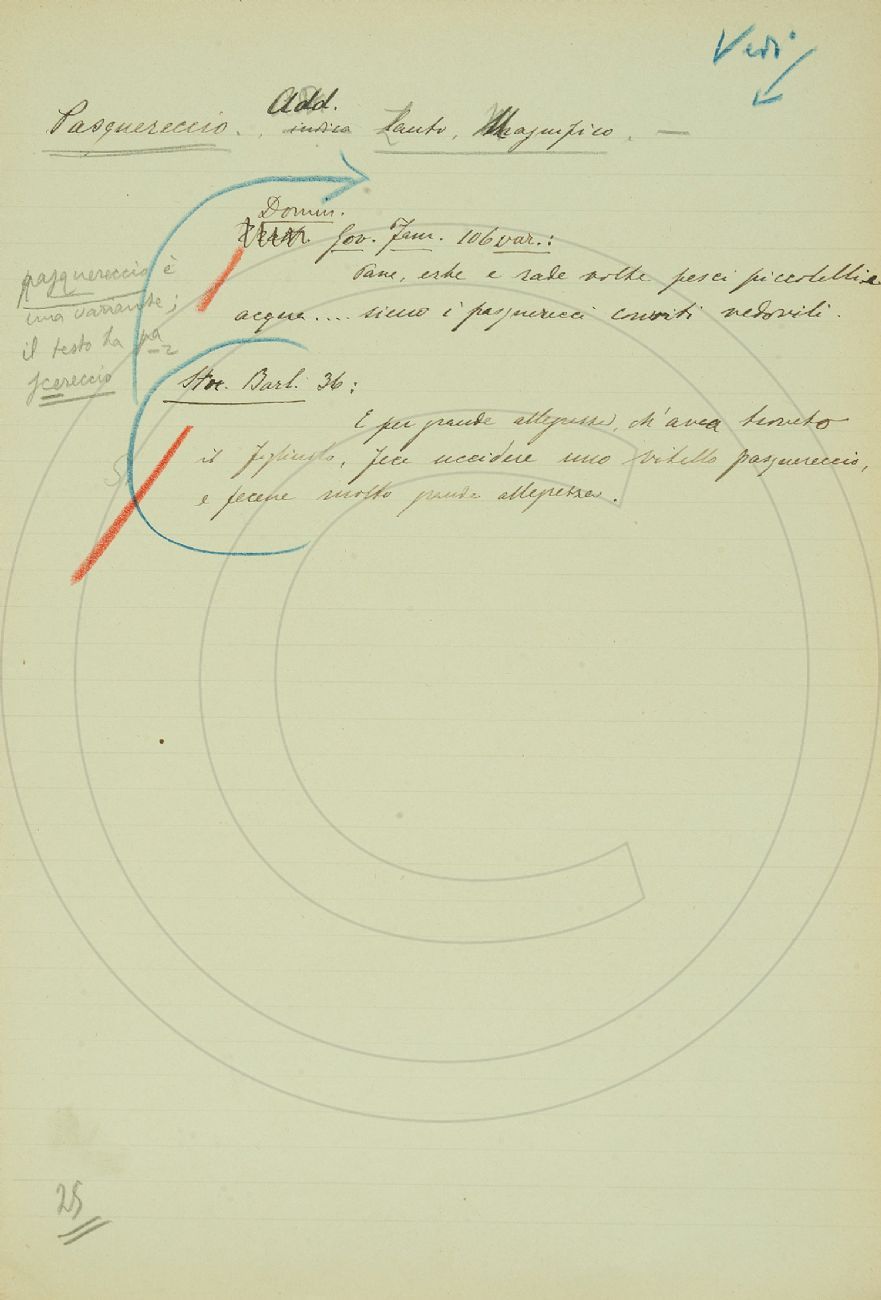 Vedi
Add.
Pasquereccio. indica Lauto, Magnifico. —
Domin.
Gov. Fam. 106 var.:
Pane, erbe e rade volte pesci piccolelli e
acqua.... sieno i pasquerecci conviti vedovili.
pasquereccio è
una variante;
il testo ha pa
scereccio
Stor. Barl. 36:
E per grande allegrezza, ch'avea trovato
il figliuolo, fece uccidere uno vitello pasquereccio,
e fecene molto grande allegrezza.
25